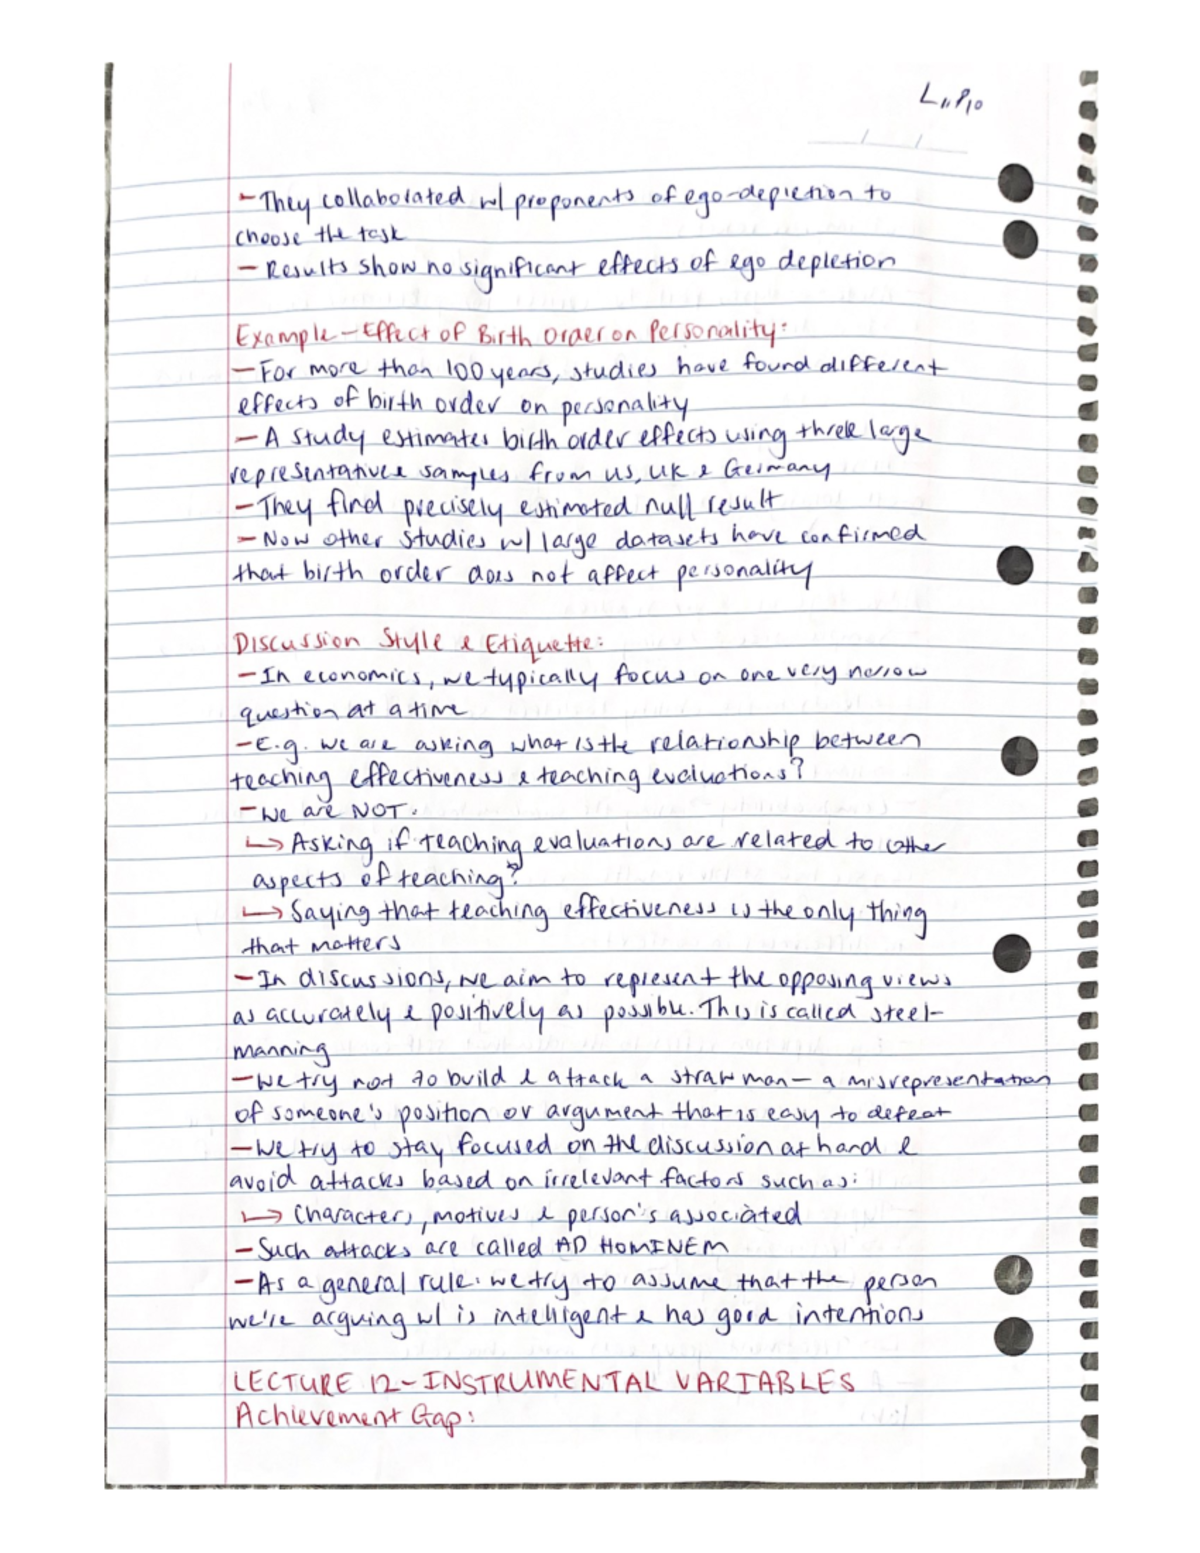 L11P10
- They collaborated w/ proponents of ego-depletion to
choose the task
- Results show no significant effects of ego depletion
Example - Effect of Birth Order on Personality:
- For more than 100 years, studies have found different
effects of birth order on personality
- A study estimates birth order effects using three large
representative samples from US, UK & Germany
- They find precisely estimated null result
- Now other studies w/ large datasets have confirmed
that birth order does not affect personality
Discussion Style & Etiquette:
- In economics, we typically focus on one very narrow
question at a time
- E.g. we are asking what is the relationship between
teaching effectiveness & teaching evaluations?
- We are NOT:
↳ Asking if teaching evaluations are related to other
aspects of teaching?
↳ Saying that teaching effectiveness is the only thing
that matters
- In discussions, we aim to represent the opposing views
as accurately & positively as possible. This is called steel-
manning
- We try not to build & attack a straw man - a misrepresentation
of someone's position or argument that is easy to defeat
- We try to stay focused on the discussion at hand &
avoid attacks based on irrelevant factors such as:
↳ Characters, motives & person's associated
- Such attacks are called AD HOMINEM
- As a general rule: we try to assume that the person
we're arguing w/ is intelligent & has good intentions
LECTURE 12 - INSTRUMENTAL VARIABLES
Achievement Gap: